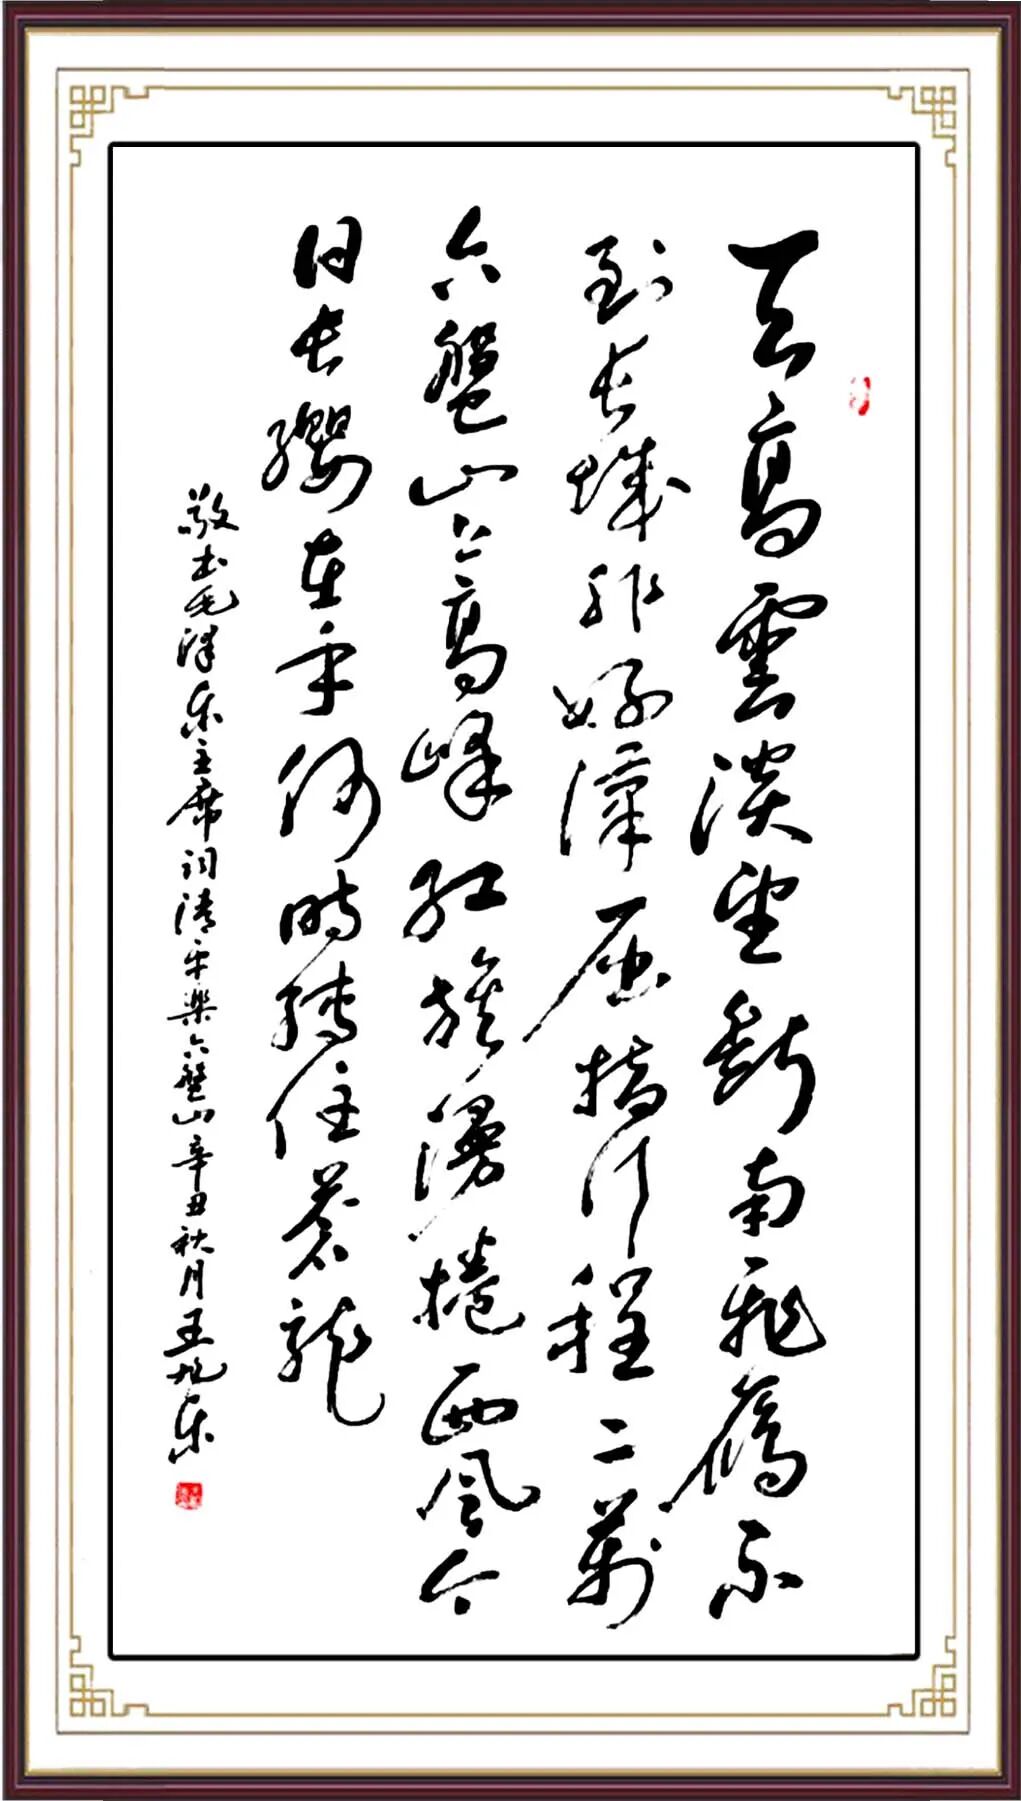 天高雲淡望斷南飛雁不
到长城非好漢屈指行程二萬
六盤山上高峰红旗漫捲西风今
日长纓在手何時縛住蒼龍
敬书毛泽东主席词清平樂六盤山辛丑秋月王九东